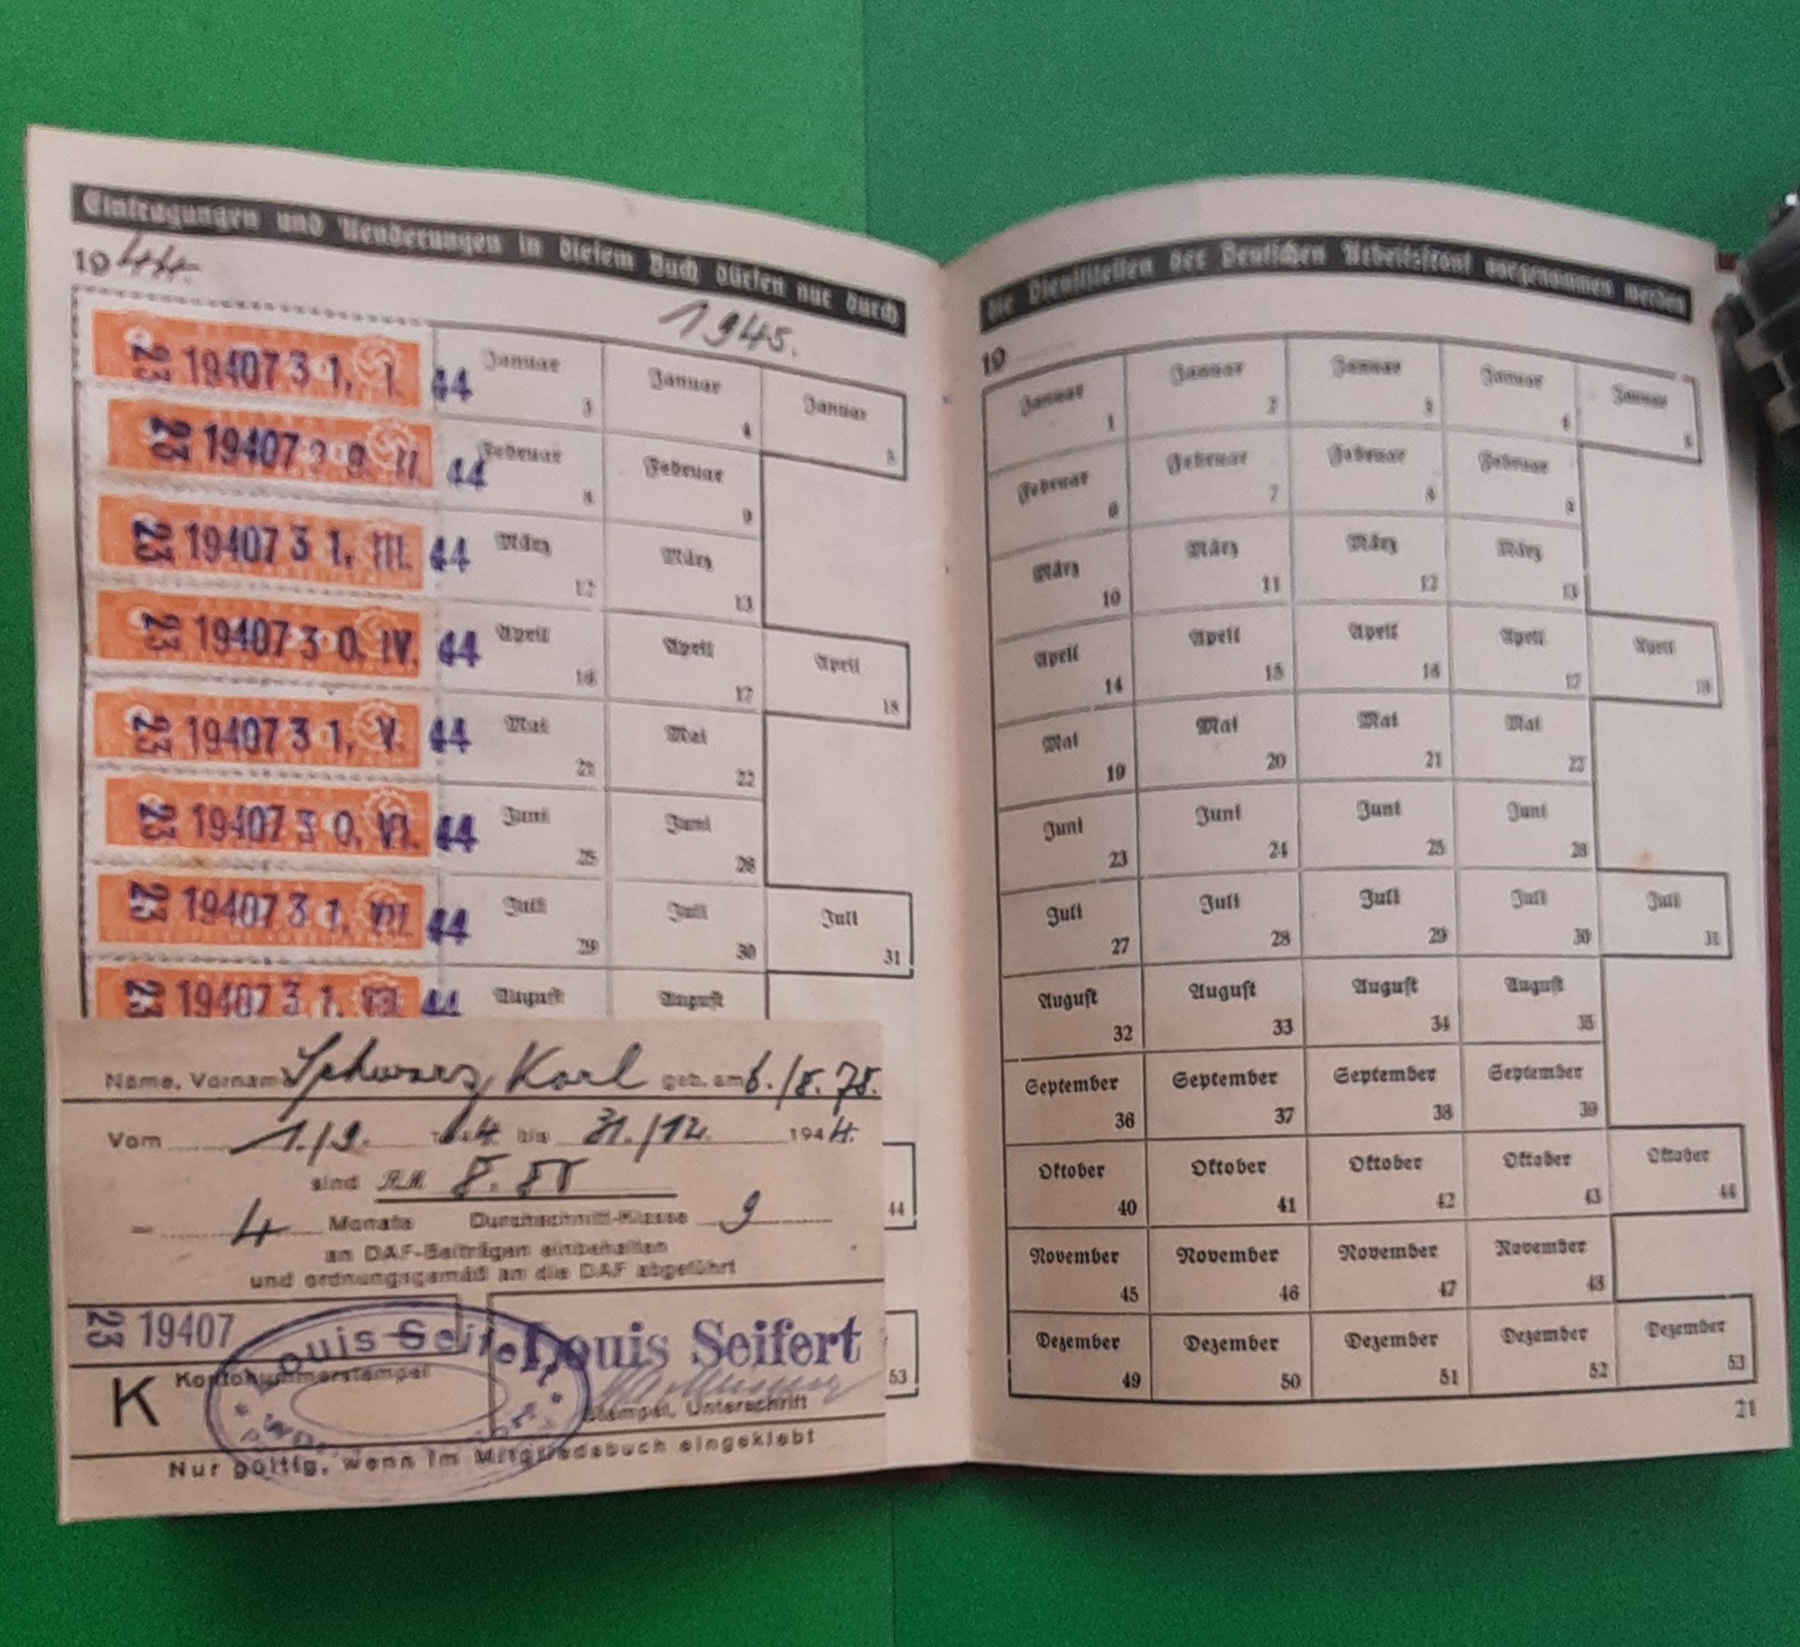 Eintragungen und Aenderungen in diesem Buch dürfen nur durch
1944.
1945.
23 19407 31. I. 44
Januar 3 Januar 4 Januar 5
23 19407 29. II. 44
Februar 8 Februar 9
23 19407 31. III. 44
März 12 März 13
23 19407 30. IV. 44
April 16 April 17 April 18
23 19407 31. V. 44
Mai 21 Mai 22
23 19407 30. VI. 44
Juni 25 Juni 26
23 19407 31. VII. 44
Juli 29 Juli 30 Juli 31
23 19407 31. VIII. 44
August August
44
53
Name, Vorname Schwarz, Karl geb. am 6./8.78.
Vom 1./9. 1944 bis 31./12. 1944.
sind RM
4 Monate Durchschnitt-Klasse 9
an DAF-Beiträgen einbehalten
und ordnungsgemäß an die DAF abgeführt
23 19407
Louis Seifert
Louis Seifert
Kontonummerstempel
K
Stempel, Unterschrift
Nur gültig, wenn im Mitgliedsbuch eingeklebt
die Dienststellen der Deutschen Arbeitsfront vorgenommen werden
19
Januar 1 Januar 2 Januar 3 Januar 4 Januar 5
Februar 6 Februar 7 Februar 8 Februar 9
März 10 März 11 März 12 März 13
April 14 April 15 April 16 April 17 April 18
Mai 19 Mai 20 Mai 21 Mai 22
Juni 23 Juni 24 Juni 25 Juni 26
Juli 27 Juli 28 Juli 29 Juli 30 Juli 31
August 32 August 33 August 34 August 35
September 36 September 37 September 38 September 39
Oktober 40 Oktober 41 Oktober 42 Oktober 43 Oktober 44
November 45 November 46 November 47 November 48
Dezember 49 Dezember 50 Dezember 51 Dezember 52 Dezember 53
21